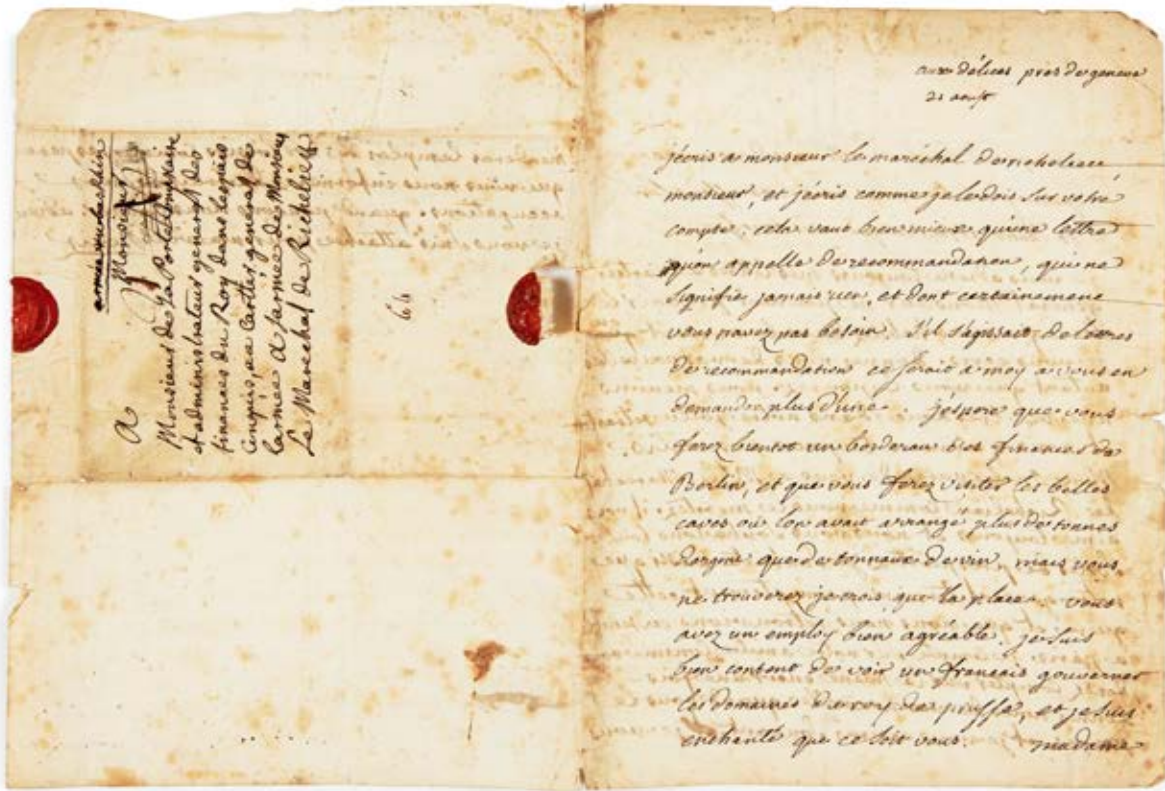 armée du bas rhin
Monsieur
A
Monsieur de la Porte
Administrateur general des
finances du Roy dans les païs
Conquis, au Cartier general de
larmée a larmée de Monsieur
Le Marechal de Richelieu
aux délices pres de geneve
21 aoust
jécris a monsieur le maréchal de richelieu
monsieur, et jécris comme je le dois sur votre
compte; cela vaut bien mieux qu'une lettre
qu'on appelle de recommandation, qui ne
signifie jamais rien, et dont certainement
vous navez pas besoin. S'il s'agissait de lettres
de recommandation ce serait a moy a vous en
demander plus d'une. j'espere que vous
ferez bientot un borderau des finances de
Berlin, et que vous ferez visiter les belles
caves où lon avait arrangé plus de tonnes
dargent que de tonnaux de vin, mais vous
ne trouverez je crois que la place. vous
avez un employ bien agréable. je suis
bien content de voir un francais gouverner
les domaines du roy de prusse, et je suis
enchanté que ce soit vous. madame